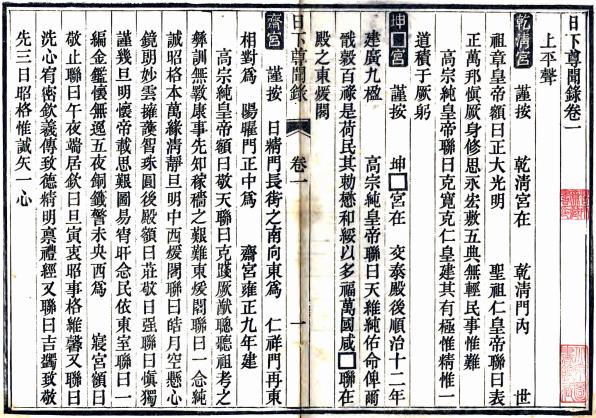 日下尊聞錄卷一
上平聲
乾清宮 謹按 乾清宮在 乾清門內 世
祖章皇帝額曰正大光明 聖祖仁皇帝聯曰表
正萬邦愼厥身修思永弘敷五典無輕民事惟難
高宗純皇帝聯曰克寬克仁皇建其有極惟精惟一
道積于厥躬
坤□宮 謹按 坤□宮在 交泰殿後順治十二年
建廣九楹 高宗純皇帝聯曰天維純佑命俾爾
戩穀百祿是荷民其勑懋和綏以多福萬國咸□聯在
殿之東煖閣
日下尊聞錄 卷一 一
齋宮 謹按 日精門長街之南向東爲 仁祥門再東
相對爲 陽曜門正中爲 齋宮雍正九年建
高宗純皇帝額曰敬天聯曰克踐厥猷聰聽祖考之
彝訓無斁康事先知稼穡之艱難東煖閣聯曰一念純
誠昭格本萬緣淸靜旦明中西煖閣聯曰皓月空懸心
鏡朗妙雲擁護智珠圓後殿額曰莊敬日强聯曰愼獨
謹幾旦明懷帝載思艱圖易宵旰念民依東室聯曰一
編金鑑懷無逸五夜銅籤警未央西爲 寢宮額曰
敬止聯曰午夜端居欽曰旦寅衷昭事格維馨又聯曰
洗心宥密欽羲傳致德精明稟禮經又聯曰吉蠲致敬
先三日昭格惟誠矢一心